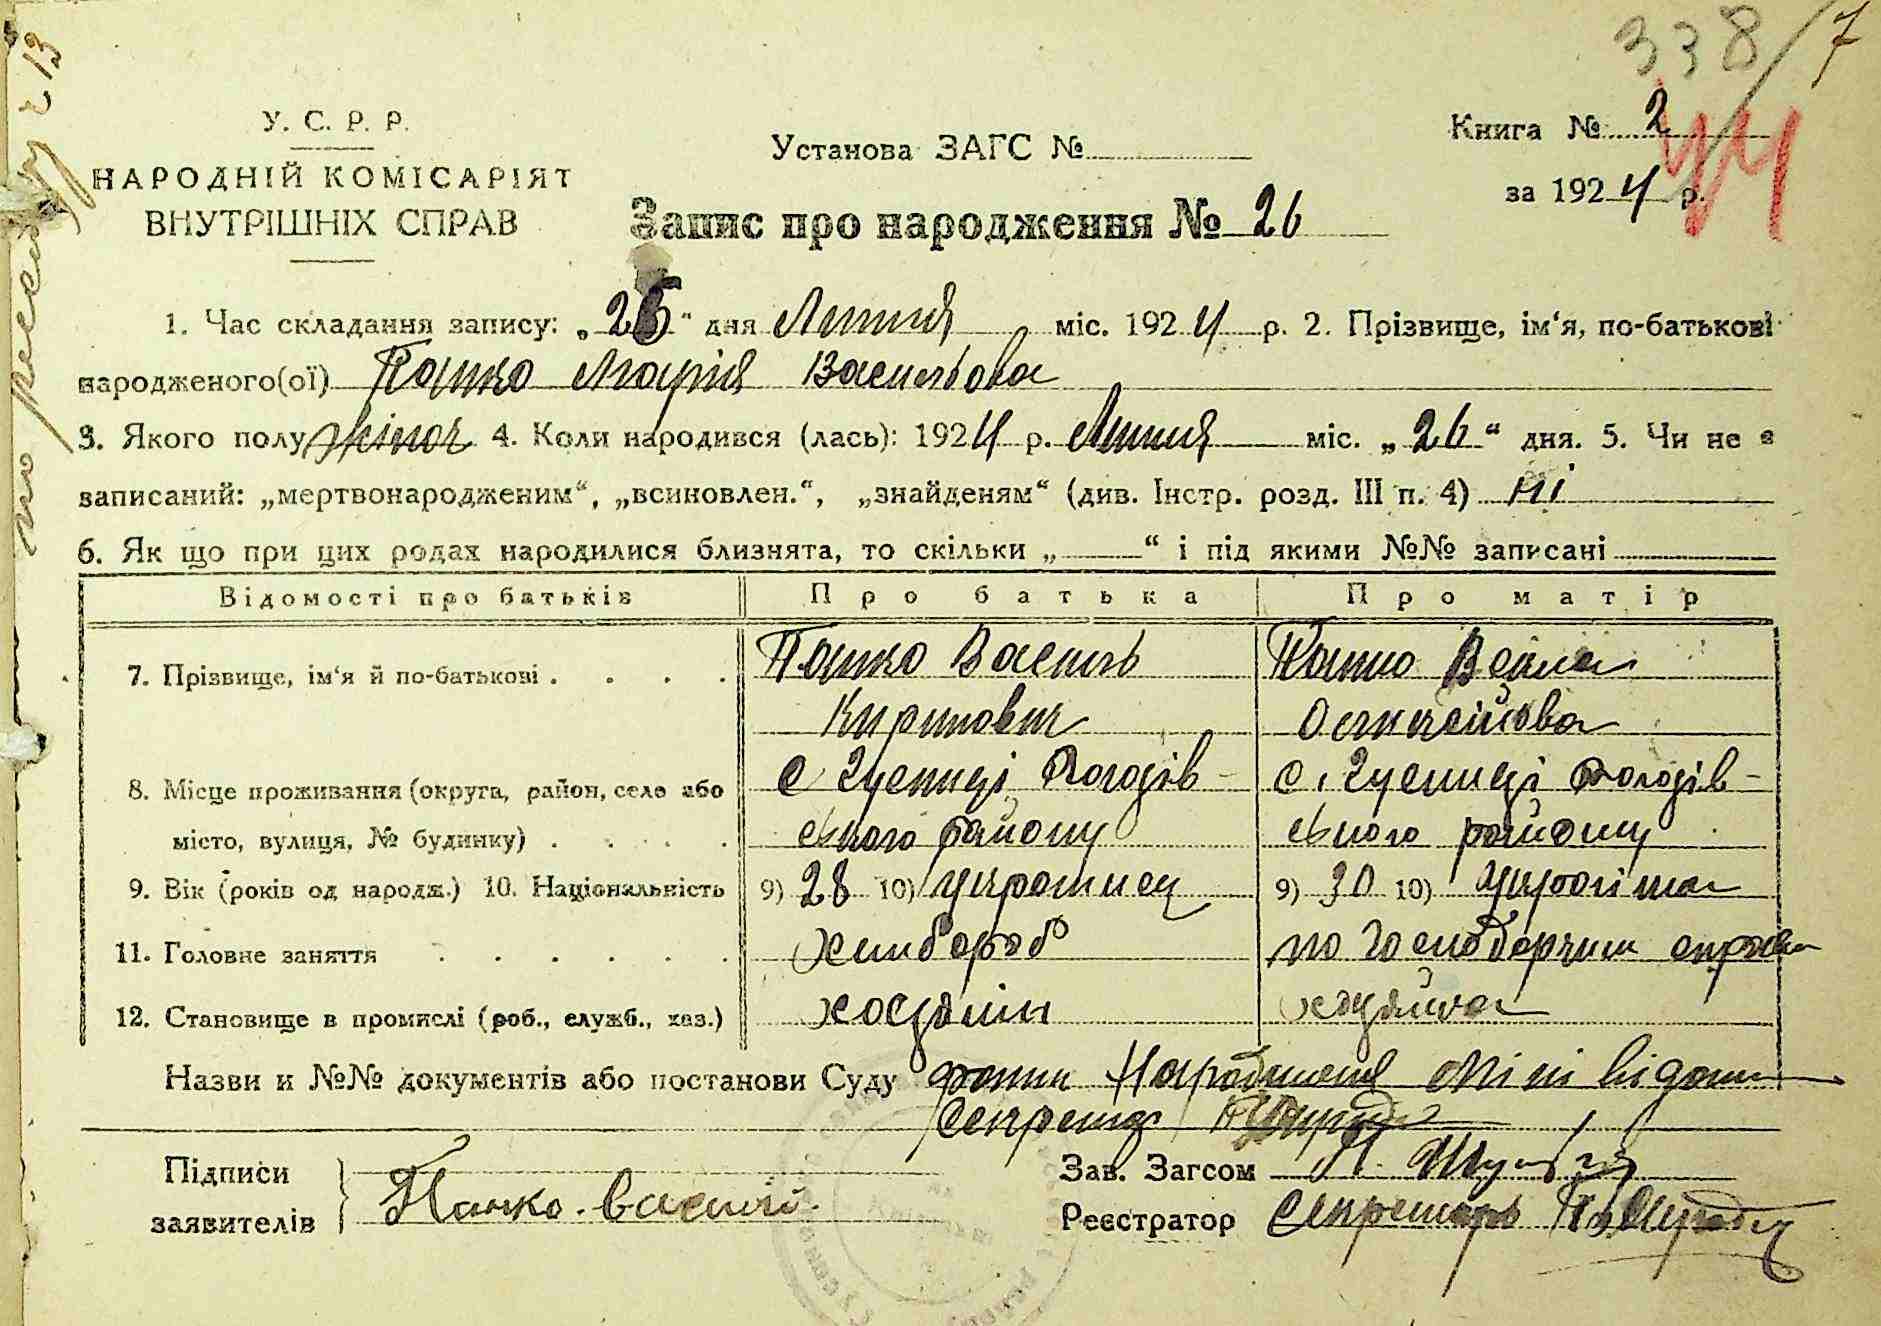 338/7
44
У. С. Р. Р.
НАРОДНІЙ КОМІСАРІЯТ
ВНУТРІШНІХ СПРАВ
Установа ЗАГС №
Книга № 2
за 1924 р.
Запис про народження № 26
1. Час складання запису: „26“ дня Липня міс. 1924 р. 2. Прізвище, ім‘я, по-батькові
народженого(ої) Панко Марія Васильова
3. Якого полу жіноч 4. Коли народився (лась): 1924 р. Липня міс. „26“ дня. 5. Чи не є
записаний: „мертвонародженим“, „всиновлен.“, „знайденям“ (див. Інстр. розд. III п. 4) ні
6. Як що при цих родах народилися близнята, то скільки „ “ і під якими №№ записані
Відомості про батьків Про батька Про матір
7. Прізвище, ім‘я й по-батькові . . . . Панко Василь Панко
Кирилович
8. Місце проживання (округа, район, село або с Гусенці с. Гусенці
місто, вулиця, № будинку) . . . . ського району ського району
9. Вік (років од народж.) 10. Національність 9) 28 10) українец 9) 30 10) українка
11. Головне заняття . . . . . . хлибороб по господарчим справам
12. Становище в промислі (роб., служб., хаз.) хозяїн хозяйка
Назви и №№ документів або постанови Суду факт народження мені відом
Секретар
Підписи
заявителів
Панко Василій
Зав. Загсом
Реєстратор Секретарь